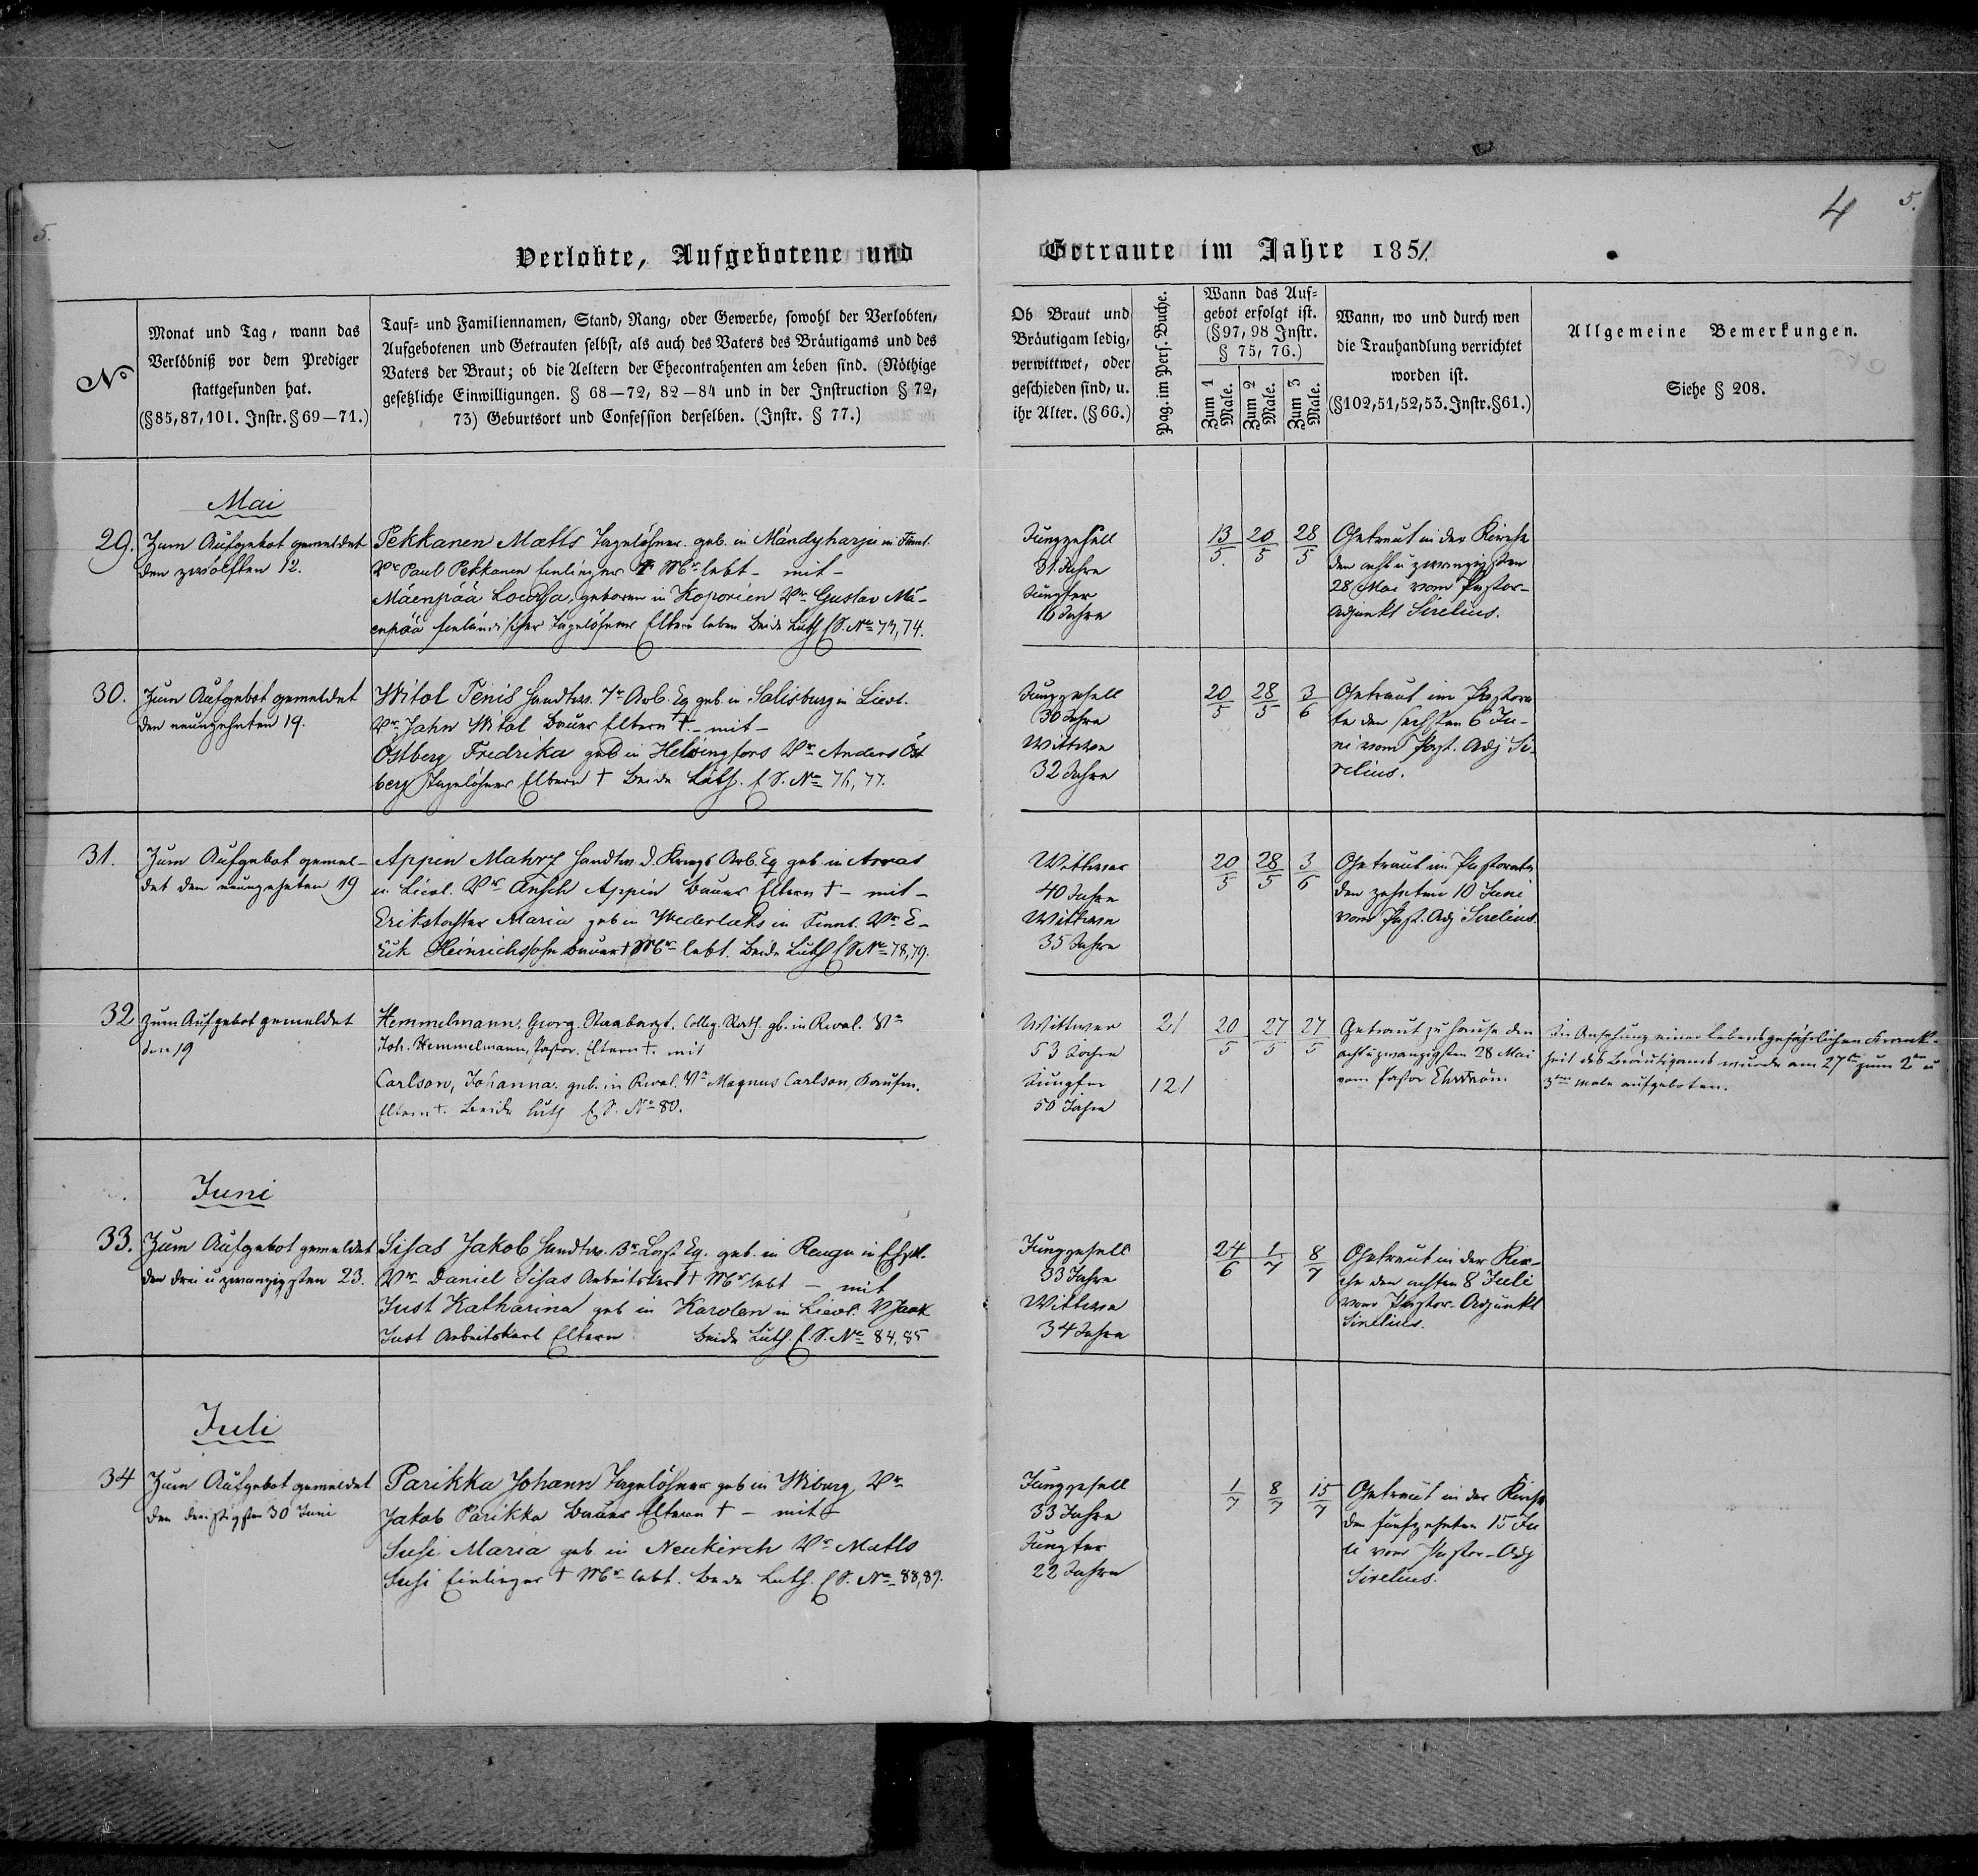 5.
4
5.
Verlobte, Aufgebotene und
Getraute im Jahre 1851.
No
Monat und Tag, wann das
Verlöbniß vor dem Prediger
stattgefunden hat.
(§85,87,101. Instr. §69–71.)
Tauf= und Familiennamen, Stand, Rang, oder Gewerbe, sowohl der Verlobten,
Aufgebotenen und Getrauten selbst, als auch des Vaters des Bräutigams und des
Vaters der Braut; ob die Aeltern der Ehecontrahenten am Leben sind. (Nöthige
gesetzliche Einwilligungen. § 68–72, 82–84 und in der Instruction § 72,
73) Geburtsort und Confession derselben. (Instr. § 77.)
Ob Braut und
Bräutigam ledig,
verwittwet, oder
geschieden sind, u.
ihr Alter. (§66.)
Pag. im Pers. Buche.
Wann das Auf=
gebot erfolgt ist.
(§97, 98 Instr.
§ 75, 76.)
Zum 1 Male.
Zum 2 Male.
Zum 3 Male.
Wann, wo und durch wen
die Trauhandlung verrichtet
worden ist.
(§102,51,52,53. Instr. §61.)
Allgemeine Bemerkungen.
Siehe § 208.
Mai
29.
Zum Aufgebot gemeldet
den zwölften 12.
Pekkanen Matts Tagelöhner geb. in Mändyharju in Finnl.
Vr Paul Pekkanen Einlieger † Mr lebt – mit –
Mäenpää Lovisa, geboren in Koporien Vr Gustav Mä-
enpää finländischer Tagelöhner Eltern leben Beide Luth E.S. No 73, 74.
Junggesell
31 Jahre
Jungfer
16 Jahre
13/5 20/5 28/5
Getraut in der Kirche
den acht u zwanzigsten
28 Mai vom Pastor-
Adjunkt Sirelius.
30.
Zum Aufgebot gemeldet
den neunzehnten 19.
Witol Tenis Handtw. 7r Arb. Eq geb. in Salisburg in Livl.
Vr Jahn Witol Bauer Eltern † – mit –
Östberg Fredrika geb in Helsingfors Vr Anders Öst
berg Tagelöhner Eltern † Beide Luth. E.S. No 76, 77.
Junggesell
30 Jahre
Wittwe
32 Jahre
20/5 28/5 3/6
Getraut im Pastora
te den sechsten 6 Ju-
ni vom Past. Adj Si-
relius.
31.
Zum Aufgebot gemel-
det den neunzehnten 19
Appin Mahrz Handtw. d. Kriegs Arb. Eq geb. in Arras
in Livl. Vr Ansch Appin Bauer Eltern † – mit –
Erikstochter Maria geb in Wederlaks in Finnl. Vr E-
rik Heinrichssohn Bauer † Mr lebt. Beide Luth E S No 78, 79.
Wittwer
40 Jahre
Wittwe
35 Jahre
20/5 28/5 3/6
Getraut im Pastorate
den zehnten 10 Juni
vom Past. Adj Sirelius
32
Zum Aufgebot gemeldet
den 19
Hemmelmann, Georg. Staabarzt. Colleg. Rath. gb. in Reval. Vr
Joh. Hemmelmann, Pastor. Eltern †. mit
Carlson, Johanna. geb. in Reval. Vr Magnus Carlson, Kaufm.
Eltern †. Beide Luth E.S. No 80.
Wittwer
53 Jahre
Jungfer
50 Jahre
21
121
20/5 27/5 27/5
Getraut zu Hause den
acht u zwanzigsten 28 Mai
vom Pastor Ehrström.
In Ansehung einer lebensgefährlichen Krank-
heit des Bräutigams wurde am 27ten zum 2ten u
3ten Male aufgeboten.
Juni
33.
Zum Aufgebot gemeldet
den drei u zwanzigsten 23.
Sisas Jakob Handtw. 3r Last Eq. geb. in Rauge in Ehstl.
Vr Daniel Sisas Arbeitskerl † Mr lebt – mit
Just Katharina geb in Karolen in Livl. V Jaak
Just Arbeitskerl Eltern Beide Luth. E.S. No 84, 85
Junggesell
33 Jahre
Wittwe
34 Jahre
24/6 1/7 8/7
Getraut in der Kir-
che den achten 8 Juli
vom Pastor-Adjunkt
Sirelius.
Juli
34
Zum Aufgebot gemeldet
den dreißigsten 30 Juni
Parikka Johann Tagelöhner geb in Wiburg Vr
Jakob Parikka Bauer Eltern † – mit –
Susi Maria geb. in Neukirch Vr Matts
Susi Einlieger † Mr lebt. Beide Luth. E S. No 88, 89.
Junggesell
33 Jahre
Jungfer
22 Jahre
1/7 8/7 15/7
Getraut in der Kirche
den fünfzehnten 15 Ju
li vom Pastor-Adj
Sirelius.